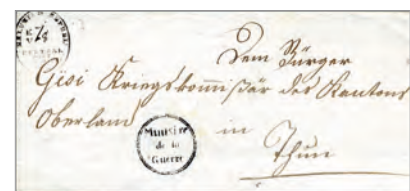 Dem Bürger
Gisi Kriegskommißär des Kantons
Oberland
in
Thun
Ministre
de la
Guerre